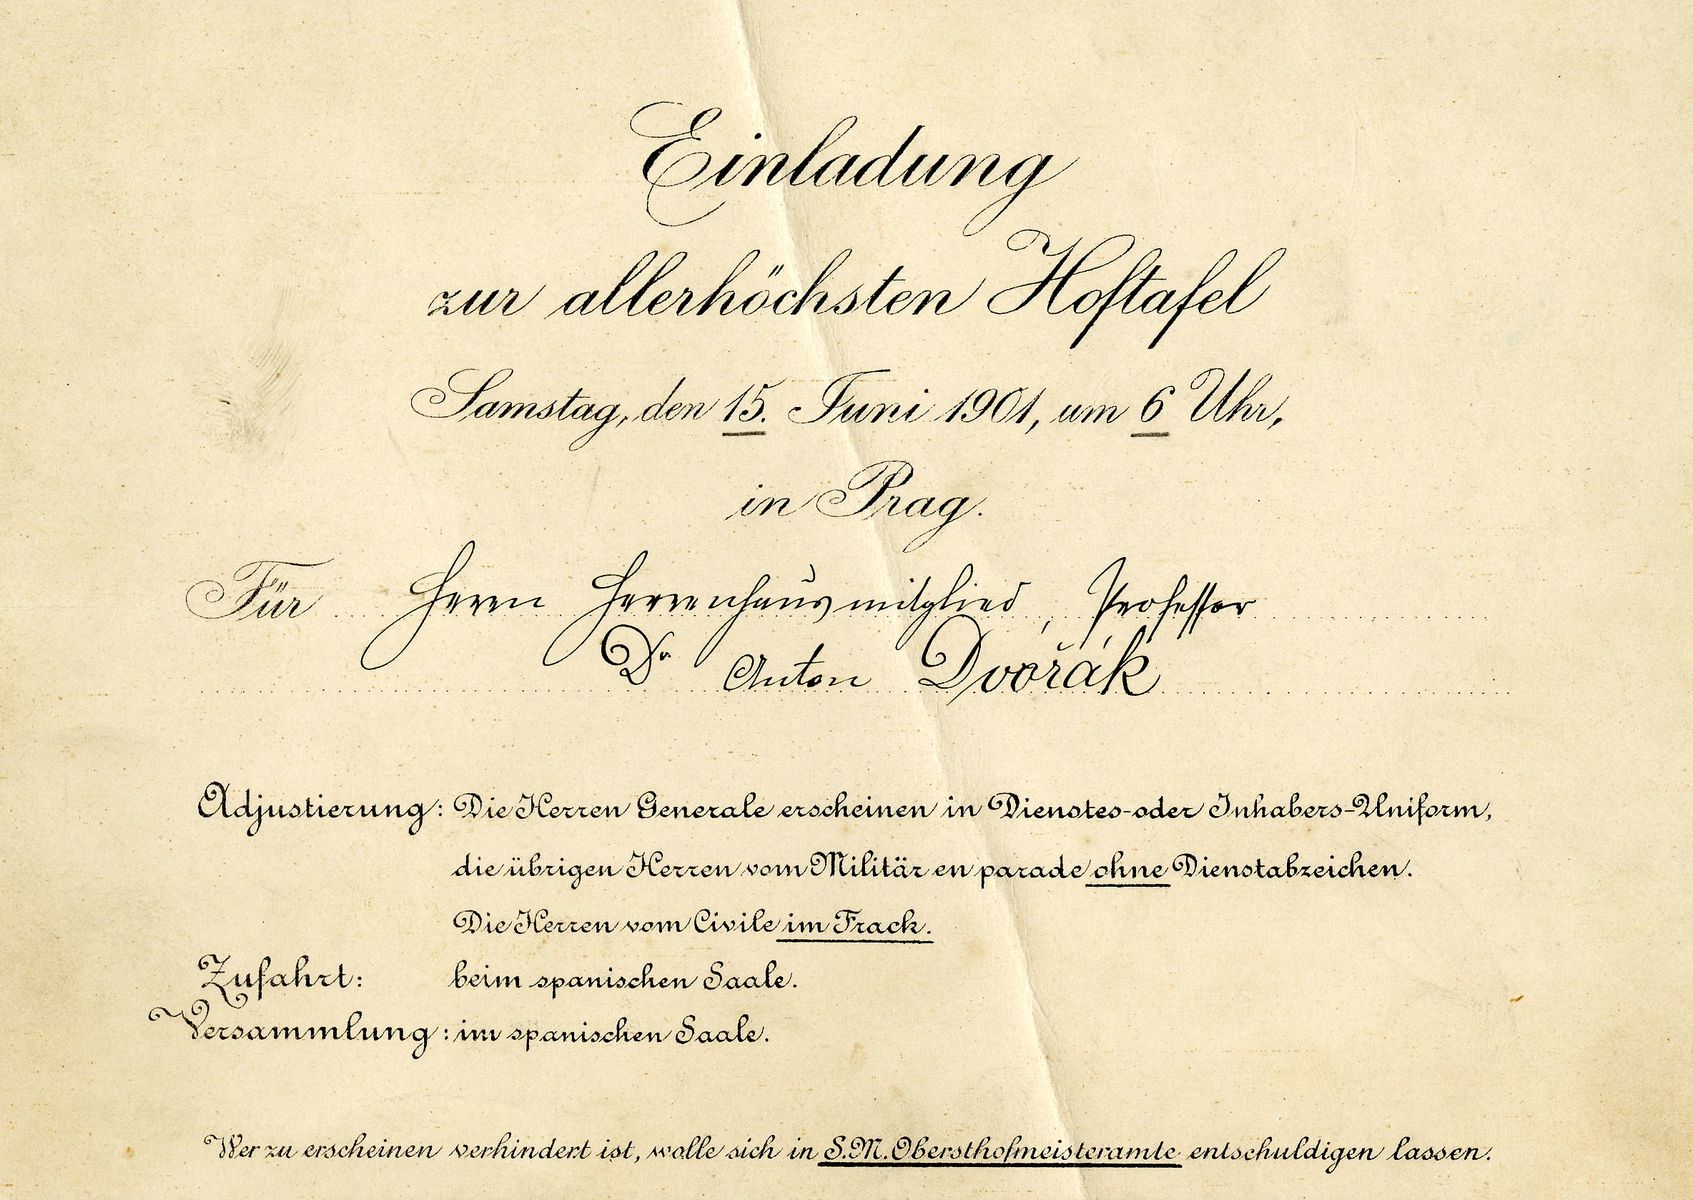 Einladung
zur allerhöchsten Hoftafel
Samstag, den 15. Juni 1901, um 6 Uhr,
in Prag.
Für Herrn Herrenhausmitglied, Professor
Dr Anton Dvořák
Adjustierung: Die Herren Generale erscheinen in Dienstes-oder Inhabers-Uniform,
die übrigen Herren vom Militär en parade ohne Dienstabzeichen.
Die Herren vom Civile im Frack.
Zufahrt: beim spanischen Saale.
Versammlung: im spanischen Saale.
Wer zu erscheinen verhindert ist, wolle sich in S.M. Obersthofmeisteramte entschuldigen lassen.